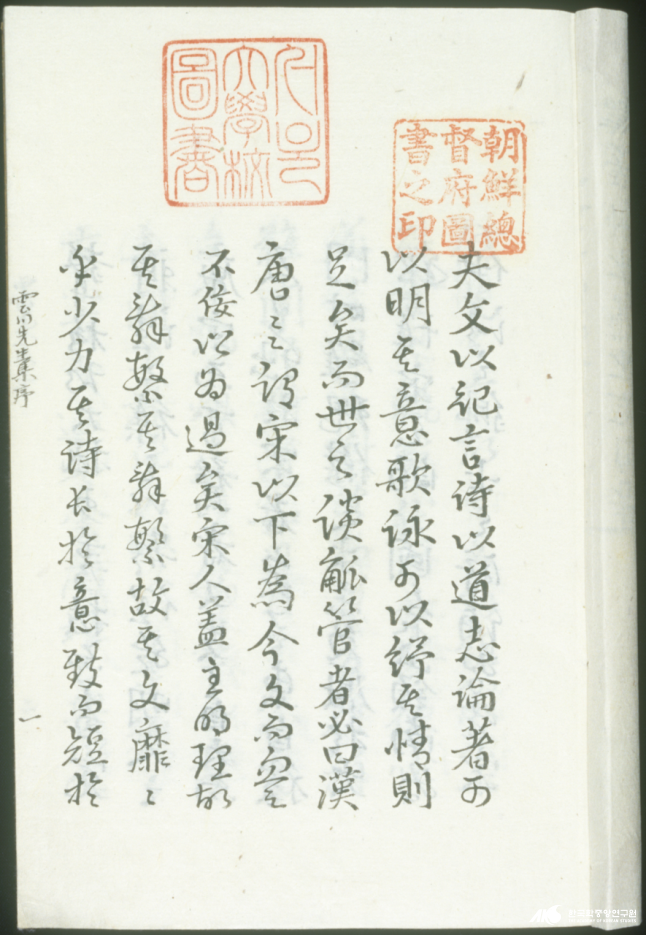 서울
大學校
圖書
朝鮮總
督府圖
書之印
夫文以記言詩以道志論著可
以明其意歌詠可以紓其情則
足矣而世之談觚管者必曰漢
唐謂宋以下為今文而
不佞以為過矣宋人蓋主明理故
其辭繁其辭繁故其文靡〻
乎少力其詩長於意致而短於
雲川先生集序
一